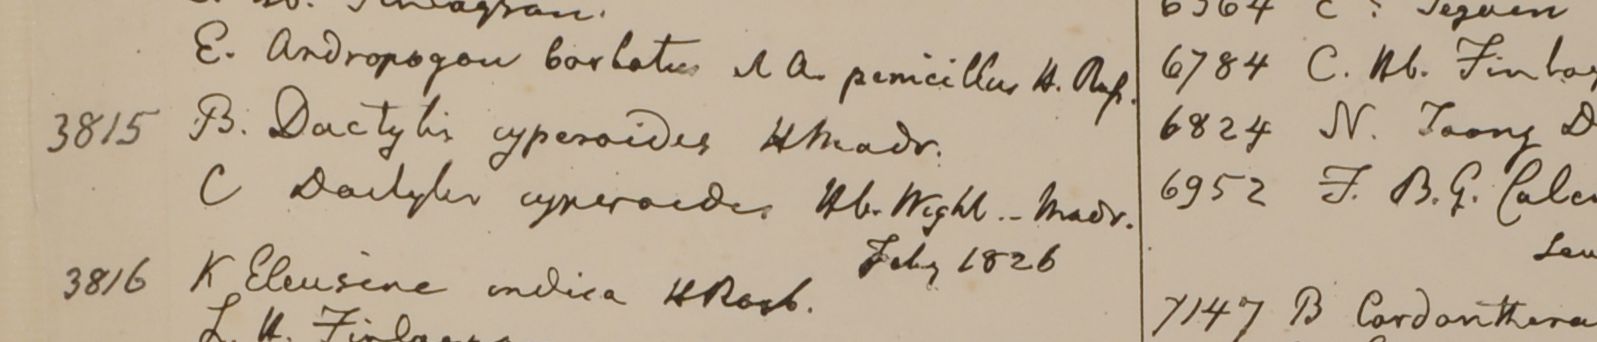 E. Andropogon barbatus & A. penicillus H. Rup.
3815 B. Dactylis cyperoides H Madr.
C Dactylis cyperoides Hb. Wight -- Madr.
Feby 1826
3816 K Eleusine indica H Roxb.
L. H. Finlayson
6364 C:
6784 C. Hb. Finlay
6824 N. Toong D
6952 F. B. G. Calcu
7147 B Cardanthera